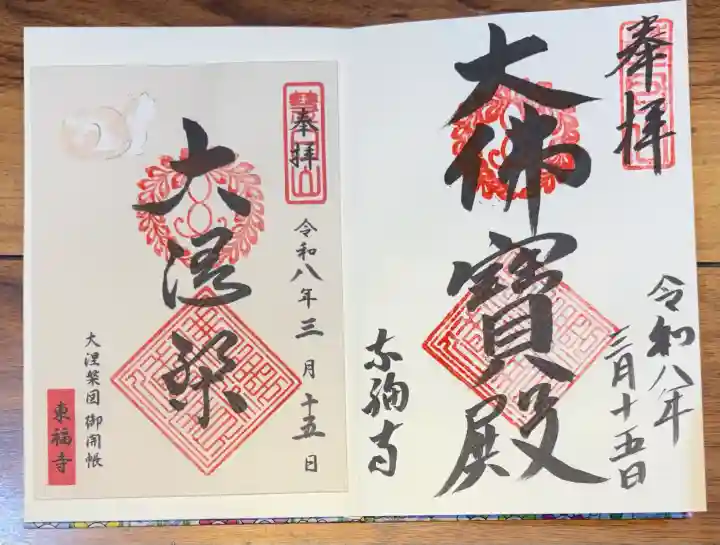 奉拝
大佛寶殿
令和八年
三月十五日
東福寺
奉拝
大涅槃
令和八年三月十五日
大涅槃図御開帳
東福寺